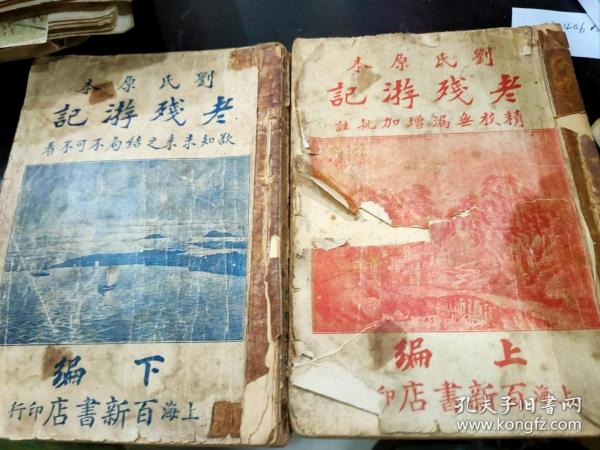 劉氏原本
老殘游記
精校無漏增加批註
上編
上海百新書店印
劉氏原本
老殘游記
欲知未來之結局不可不看
下編
上海百新書店印行
孔夫子旧书网
www.kongfz.com